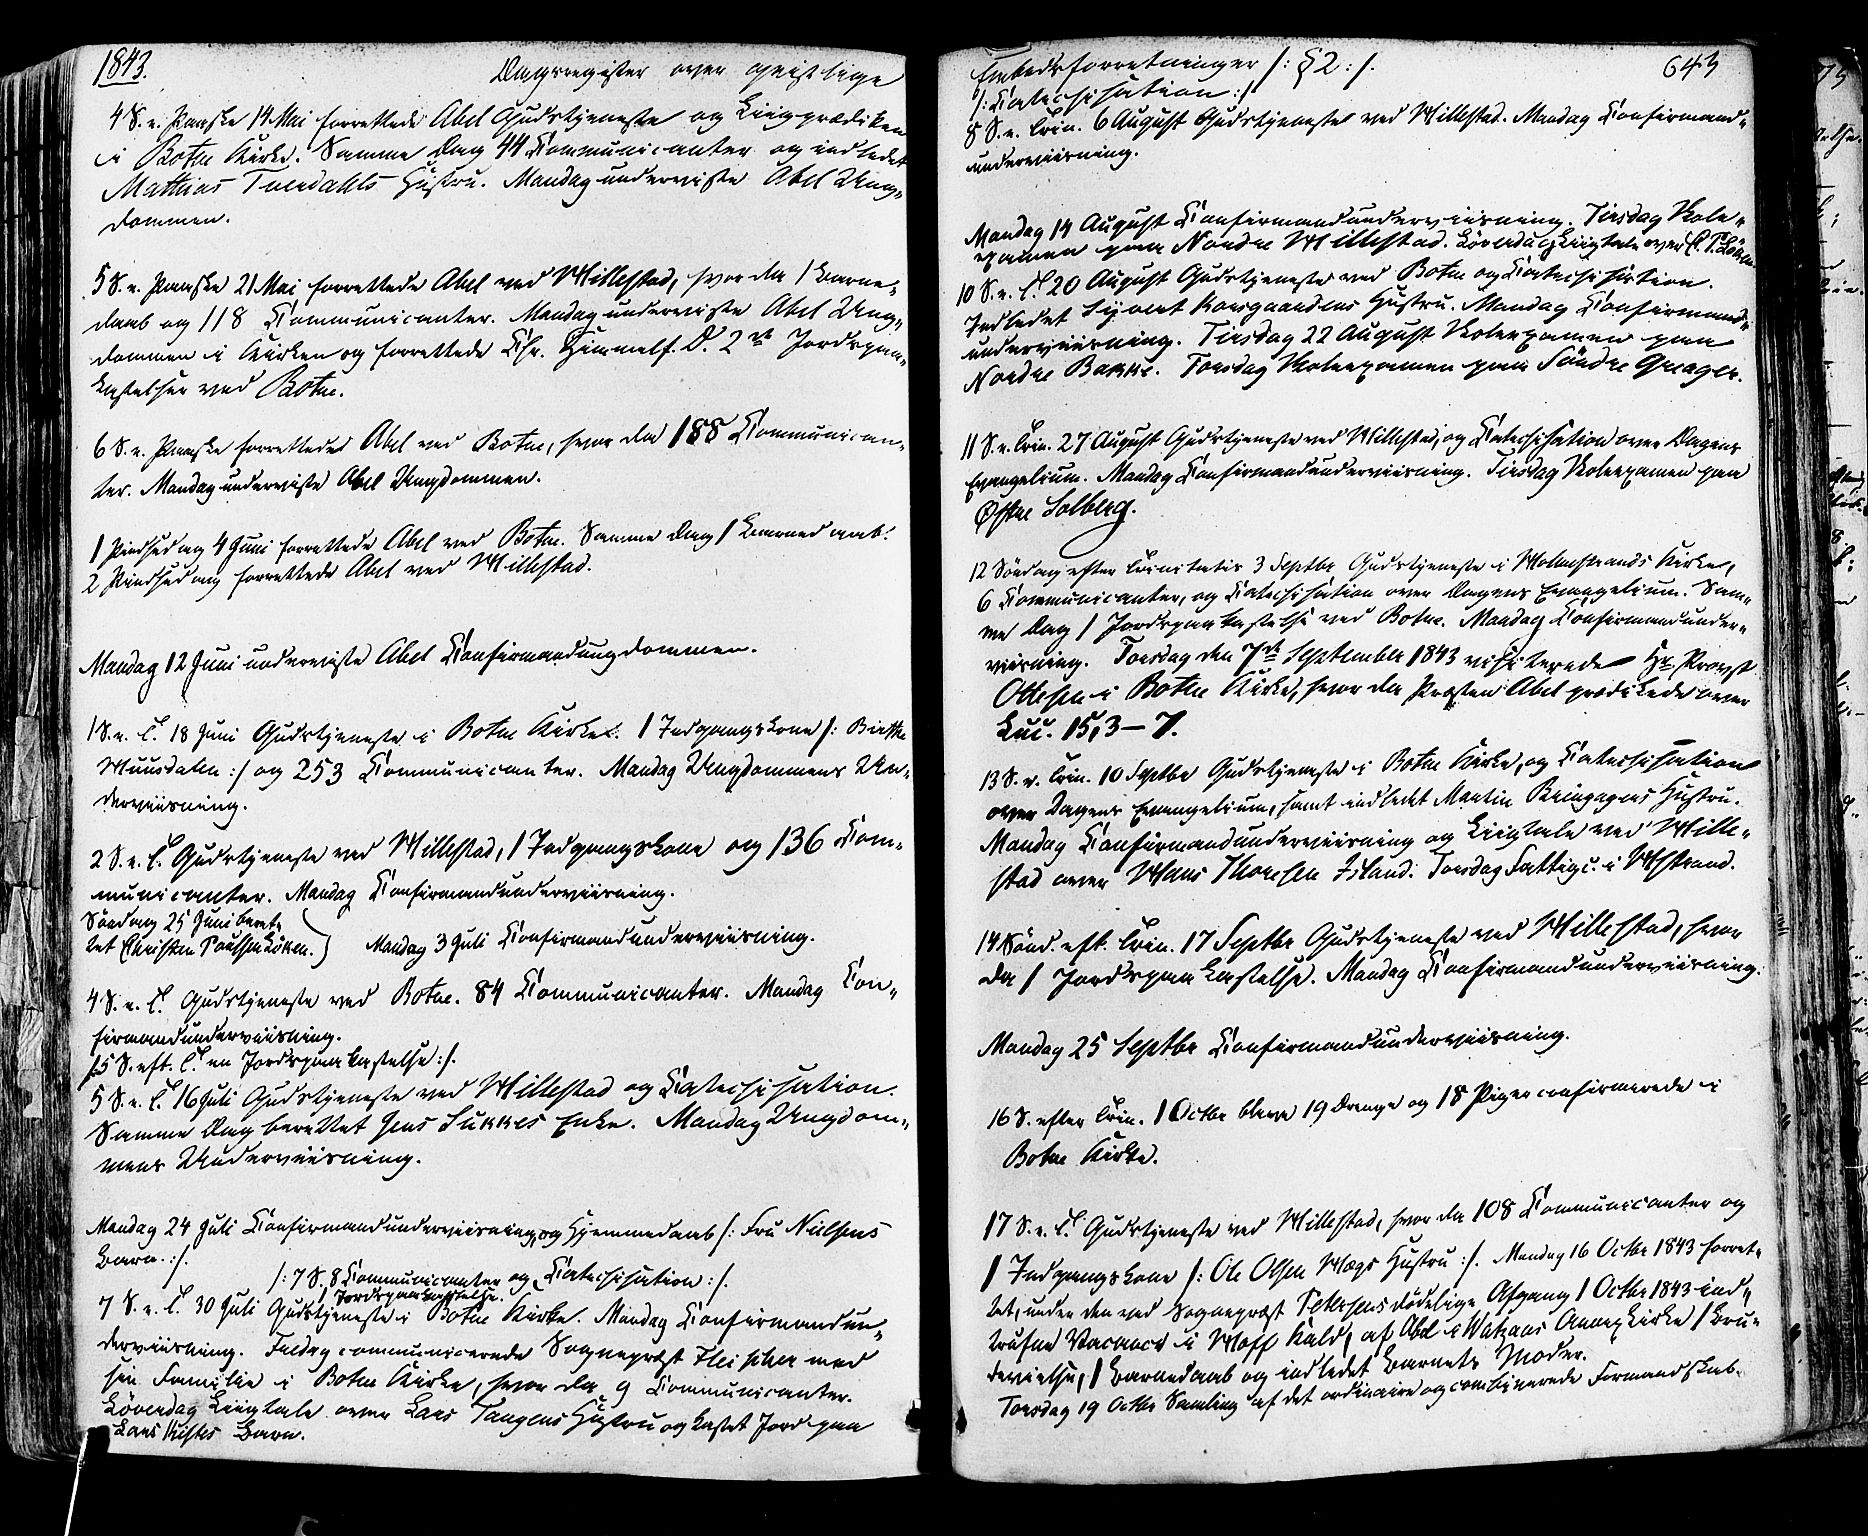 1843.
Dagsregister over geistlige
4 S. e. Paaske 14 Mai forrettede Abel Gudstjeneste og Liigprædiken
i Botne Kirke. Samme Dag 44 Communicanter og indledet
Mathias Tuerdahls Hustru. Mandag underviste Abel Ung-
dommen.
5 S. e. Paaske 21 Mai forrettede Abel ved Hillestad, hvor da 1 Barne-
daab og 118 Communicanter. Mandag underviste Abel Ung-
dommen i Kirken og forrettede Chr. Himmelf. D. 2de Jordspaa-
kastelser ved Botne.
6 S. e. Paaske forrettede Abel ved Botne, hvor da 188 Communican-
ter. Mandag underviste Abel Ungdommen.
1 Pindsedag 4 Juni forrettede Abel ved Botne. Samme Dag 1 Barnedaab.
2 Pindsedag forrettede Abel ved Hillestad.
Mandag 12 Juni underviste Abel Confirmandungdommen.
1 S. e. T. 18 Juni Gudstjeneste i Botne Kirke. 1 Indgangskone /: Birthe
Muusdalen :/ og 253 Communicanter. Mandag Ungdommens Un-
derviisning.
2 S. e. T. Gudstjeneste ved Hillestad, 1 Indgangskone og 136 Com-
municanter. Mandag Confirmandunderviisning.
Søndag 25 Juni beret-
tet Christen Poulsen Løken.) Mandag 3 Juli Confirmandunderviisning.
4 S. e. T. Gudstjeneste ved Botne. 84 Communicanter. Mandag Con-
firmandunderviisning.
/: 5 S. eft. T. en Jordspaakastelse :/.
5 S. e. T. 16 Juli Gudstjeneste ved Hillestad og Catechisation.
Samme Dag berettet Jens Sukkes Enke. Mandag Ungdom-
mens Underviisning.
Mandag 24 Juli Confirmandunderviisning, og Hjemmedaab /: Fru Nielsens
Barn :/.
/: 7 S. 8 Communicanter og Catechisation :/.
1 Jordspaakastelse.
7 S. e. T. 30 Juli Gudstjeneste i Botne Kirke. Mandag Confirmandun-
derviisning. Fredag communicerede Sognepræst Fleischer med
sin Familie i Botne Kirke, hvor da 9 Communicanter.
Løverdag Liigtale over Lars Tangens Hustru og kastet Jord paa
Lars Kistes Barn.
Embedsforretninger /: § 2 :/.
643
/: Catechisation :/
8 S. e. Trin. 6 August Gudstjeneste ved Hillestad. Mandag Confirmand-
underviisning.
Mandag 14 August Confirmandunderviisning. Tirsdag Skole-
examen paa Nordre Hillestad. Løverdag Liigtale over C. P. Løken.
10 S. e. T. 20 August Gudstjeneste ved Botne og Catechisation.
Indledet Sivert Korsgaardens Hustru. Mandag Confirmand-
underviisning. Tirsdag 22 August Skoleexamen paa
Nordre Bakke. Torsdag Skoleexamen paa Søndre Greager.
11 S. e. Trin. 27 August Gudstjeneste ved Hillestad, og Catechisation over Dagens
Evangelium. Mandag Confirmandunderviisning. Tirsdag Skoleexamen paa
Østre Solberg.
12 Søndag efter Trinitatis 3 Septbr Gudstjeneste i Holmestrands Kirke,
6 Communicanter, og Catechisation over Dagens Evangelium. Sam-
me Dag 1 Jordspaakastelse ved Botne. Mandag Confirmandunder-
viisning. Torsdag den 7de September 1843 visiterede Hr. Provst
Ottesen i Botne Kirke, hvor da Præsten Abel prædikede over
Luc. 15, 3-7.
13 S. e. Trin. 10 Septbr Gudstjeneste i Botne Kirke, og Catechisation
over Dagens Evangelium, samt indledet Martin Bringagers Hustru.
Mandag Confirmandunderviisning og Liigtale ved Hille-
stad over Hans Thoresen Island. Torsdag Fattigc. i Hstrand.
14 Sønd. eft. Trin. 17 Septbr Gudstjeneste ved Hillestad, hvor
da 1 Jordspaakastelse. Mandag Confirmandunderviisning.
Mandag 25 Septbr Confirmandunderviisning.
16 S. efter Trin. 1 Octbr bleve 19 Drenge og 18 Piger confirmerede i
Botne Kirke.
17 S. e. T. Gudstjeneste ved Hillestad, hvor da 108 Communicanter og
1 Indgangskone /: Ole Olsen Hægs Hustru :/. Mandag 16 Octbr 1843 forret-
tet, under den ved Sognepræst Petersens dødelige Afgang 1 Octbr 1843 ind-
trufne Vacance i Hoff Kald, af Abel i Watnaas Annexkirke 1 Bru-
devielse, 1 Barnedaab og indledet Barnets Moder.
Torsdag 19 Octbr Samling af det ordinaire og combinerede Formandskab.